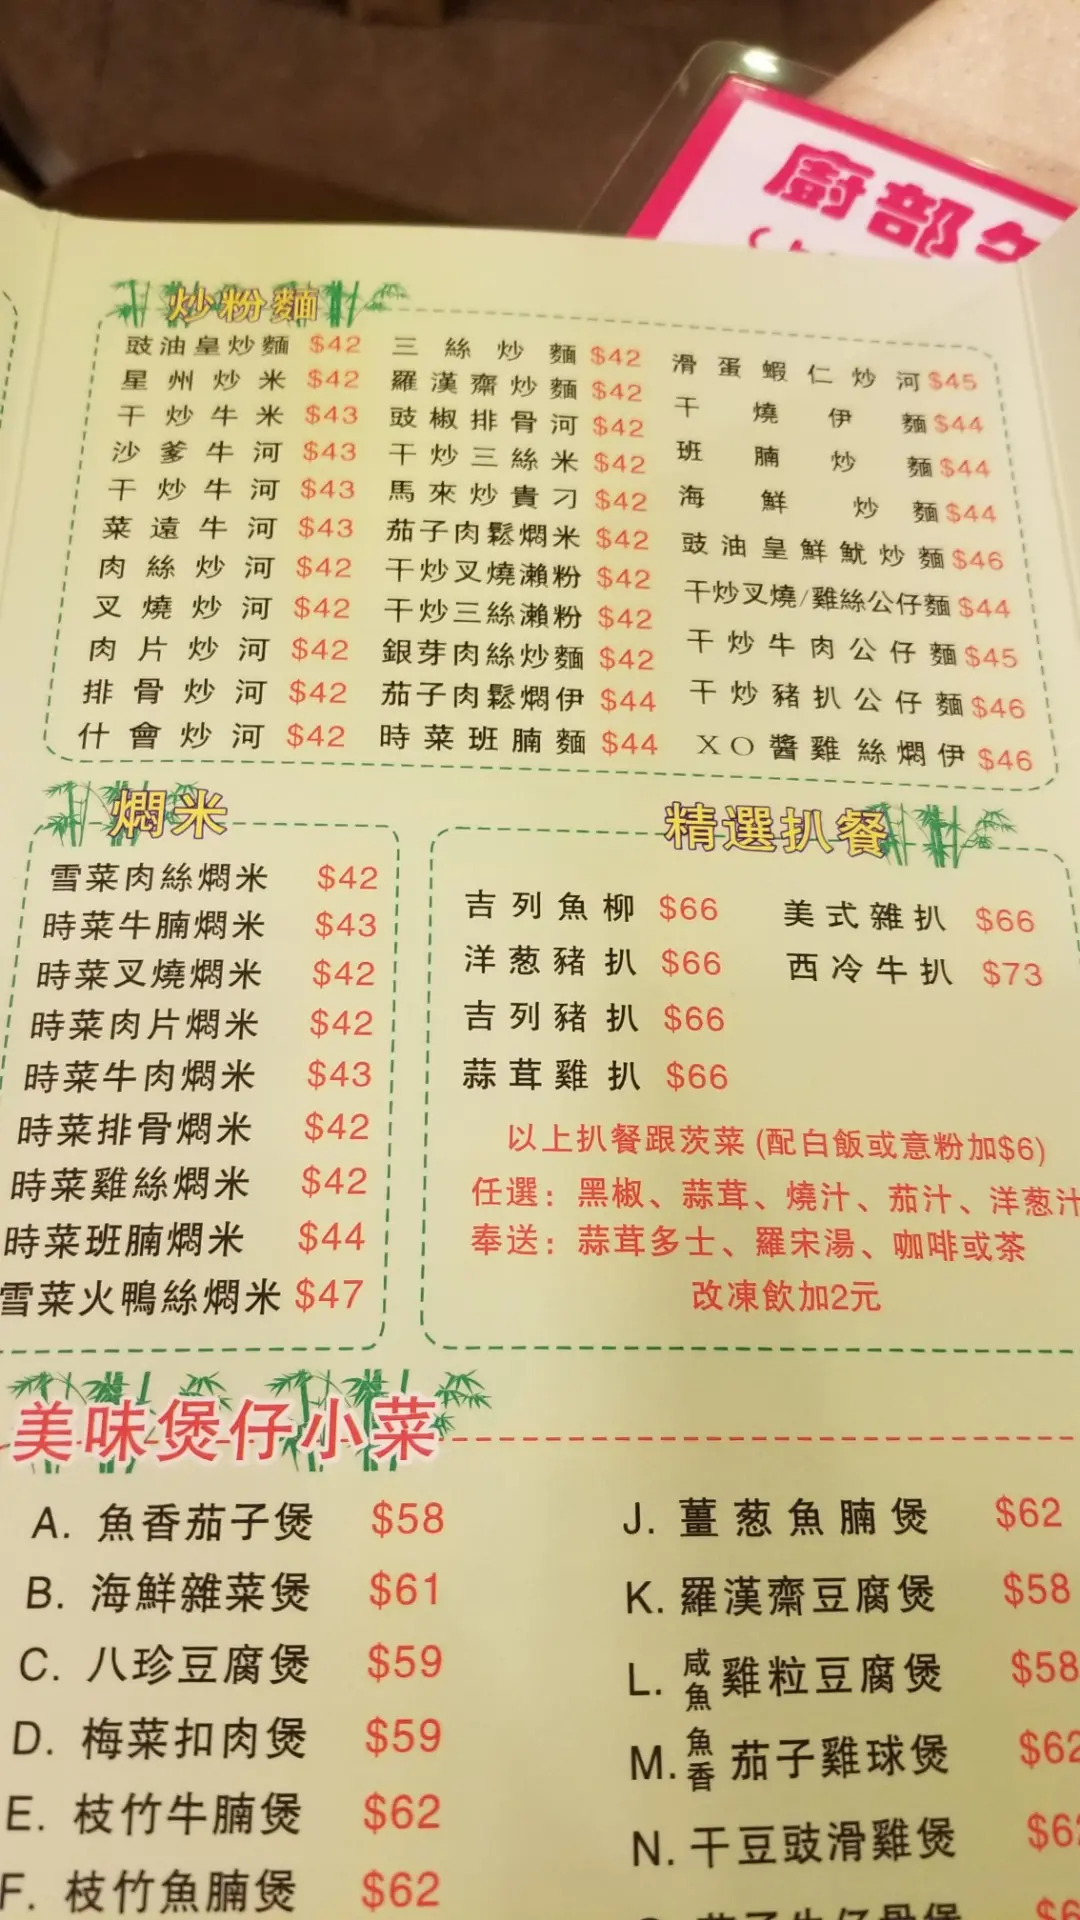 廚部
炒粉麵
豉油皇炒麵 $42
星州炒米 $42
干炒牛米 $43
沙爹牛河 $43
干炒牛河 $43
菜遠牛河 $43
肉絲炒河 $42
叉燒炒河 $42
肉片炒河 $42
排骨炒河 $42
什會炒河 $42
三絲炒麵 $42
羅漢齋炒麵 $42
豉椒排骨河 $42
干炒三絲米 $42
馬來炒貴刁 $42
茄子肉鬆燜米 $42
干炒叉燒瀨粉 $42
干炒三絲瀨粉 $42
銀芽肉絲炒麵 $42
茄子肉鬆燜伊 $44
時菜班腩麵 $44
滑蛋蝦仁炒河 $45
干燒伊麵 $44
班腩炒麵 $44
海鮮炒麵 $44
豉油皇鮮魷炒麵 $46
干炒叉燒/雞絲公仔麵 $44
干炒牛肉公仔麵 $45
干炒豬扒公仔麵 $46
XO醬雞絲燜伊 $46
燜米
雪菜肉絲燜米 $42
時菜牛腩燜米 $43
時菜叉燒燜米 $42
時菜肉片燜米 $42
時菜牛肉燜米 $43
時菜排骨燜米 $42
時菜雞絲燜米 $42
時菜班腩燜米 $44
雪菜火鴨絲燜米 $47
精選扒餐
吉列魚柳 $66
洋葱豬扒 $66
吉列豬扒 $66
蒜茸雞扒 $66
美式雜扒 $66
西冷牛扒 $73
以上扒餐跟茨菜 (配白飯或意粉加$6)
任選：黑椒、蒜茸、燒汁、茄汁、洋葱汁
奉送：蒜茸多士、羅宋湯、咖啡或茶
改凍飲加2元
美味煲仔小菜
A. 魚香茄子煲 $58
B. 海鮮雜菜煲 $61
C. 八珍豆腐煲 $59
D. 梅菜扣肉煲 $59
E. 枝竹牛腩煲 $62
F. 枝竹魚腩煲 $62
J. 薑葱魚腩煲 $62
K. 羅漢齋豆腐煲 $58
L. 咸魚雞粒豆腐煲 $58
M. 魚香茄子雞球煲 $62
N. 干豆豉滑雞煲